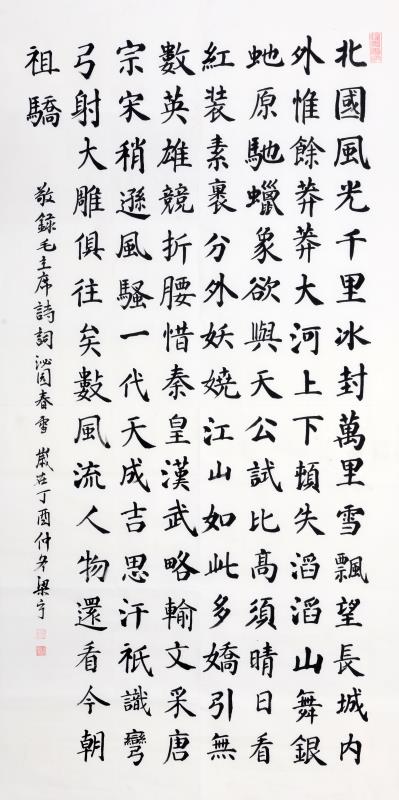 北國風光千里冰封萬里雪飄望長城内
外惟餘莽莽大河上下頓失滔滔山舞銀
虵原馳蠟象欲與天公試比髙須晴日看
紅装素裹分外妖嬈江山如此多嬌引無
數英雄競折腰惜秦皇漢武略輸文采唐
宗宋稍遜風騷一代天成吉思汗祇識彎
弓射大雕俱往矣數風流人物還看今朝
祖驕
敬録毛主席詩詞沁园春雪 歲在丁酉仲冬梁